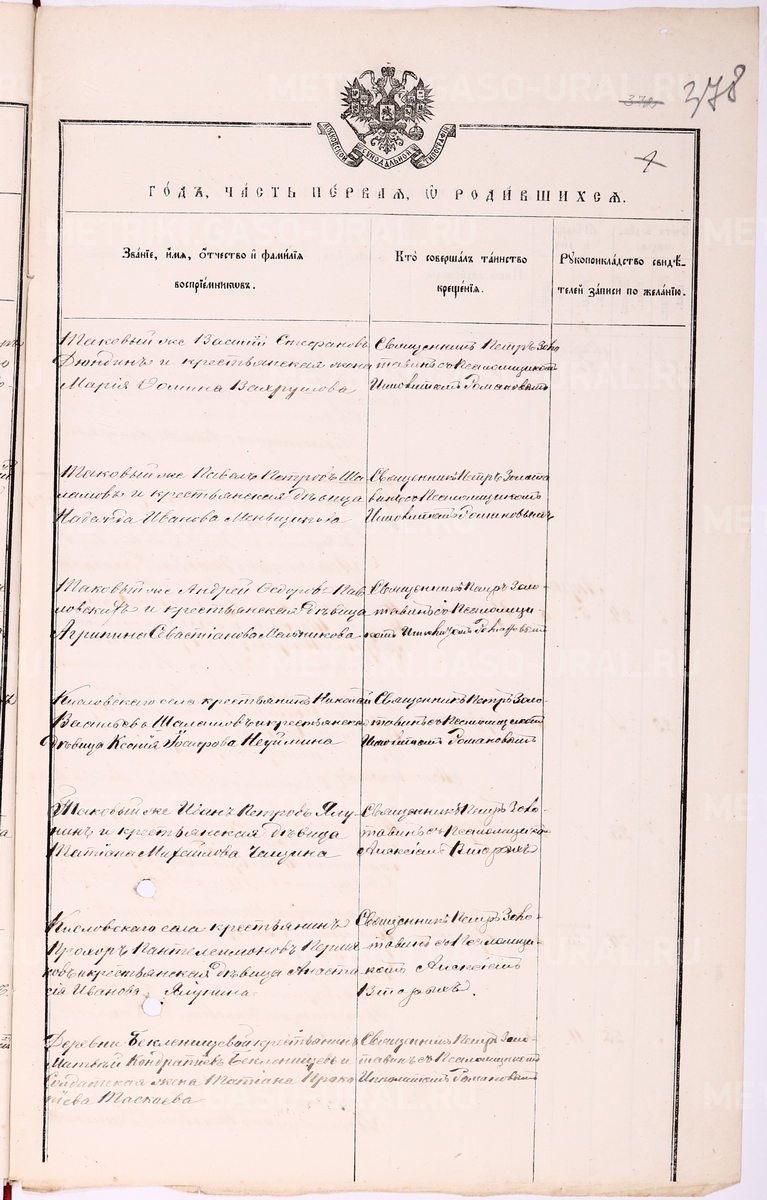 METRIKI.GASO-URAL.RU
378
4
МОСКОВСКОЙ СѴНОДАЛЬНОЙ ТИПОГРАФІИ
ГОДЪ, ЧАСТЬ ПЕРВАЯ, Ѿ РОДИВШИХСЯ.
Званіе, имя, отчество и фамилія
воспріемниковъ.
Кто совершалъ таинство
крещенія.
Рукоприкладство свидѣ-
телей записи по желанію.
Таковый же Василій Стефановъ
Дюндинъ и крестьянская жена
Марія Ѳомина Вахрушова
Священникъ Петръ Золо
тавинъ съ Псаломщикомъ
Романовымъ
Таковый же Павелъ Петровъ Ша
ламовъ и крестьянская дѣвица
Надежда Иванова Меньщикова
Священникъ Петръ Золота
винъ съ Псаломщикомъ
Романовымъ
Таковый же Андрей Ѳедоровъ Пав
ловскихъ и крестьянская дѣвица
Агрипина Севастіанова Мельникова
Священникъ Петръ Золо-
тавинъ съ Псаломщи-
комъ Романовымъ
Кисловскаго села крестьянинъ Николай
Васильевъ Шаламовъ и крестьянская
дѣвица Ксенія Неуймина
Священникъ Петръ Золо-
тавинъ съ Псаломщикомъ
Романовымъ
Таковый же Иванъ Петровъ Ялу-
нинъ и крестьянская дѣвица
Татіана Михаилова Чащина
Священникъ Петръ Золо-
тавинъ съ Псаломщико
Алексіемъ Вторыхъ
Кисловскаго села крестьянинъ
Прохоръ Пантелеимоновъ Перши
ковъ и крестьянская дѣвица Анаста
сія Иванова Ялунина.
Священникъ Петръ Золо-
тавинъ съ Псаломщи-
комъ Алексіемъ
Вторыхъ.
Деревни Бекленищевой крестьянинъ
Матѳей Кондратіевъ Бекленищевъ и
Солдатская жена Татіана Проко
піева Таскаева
Священникъ Петръ Золо-
тавинъ съ Псаломщикомъ
Романовымъ